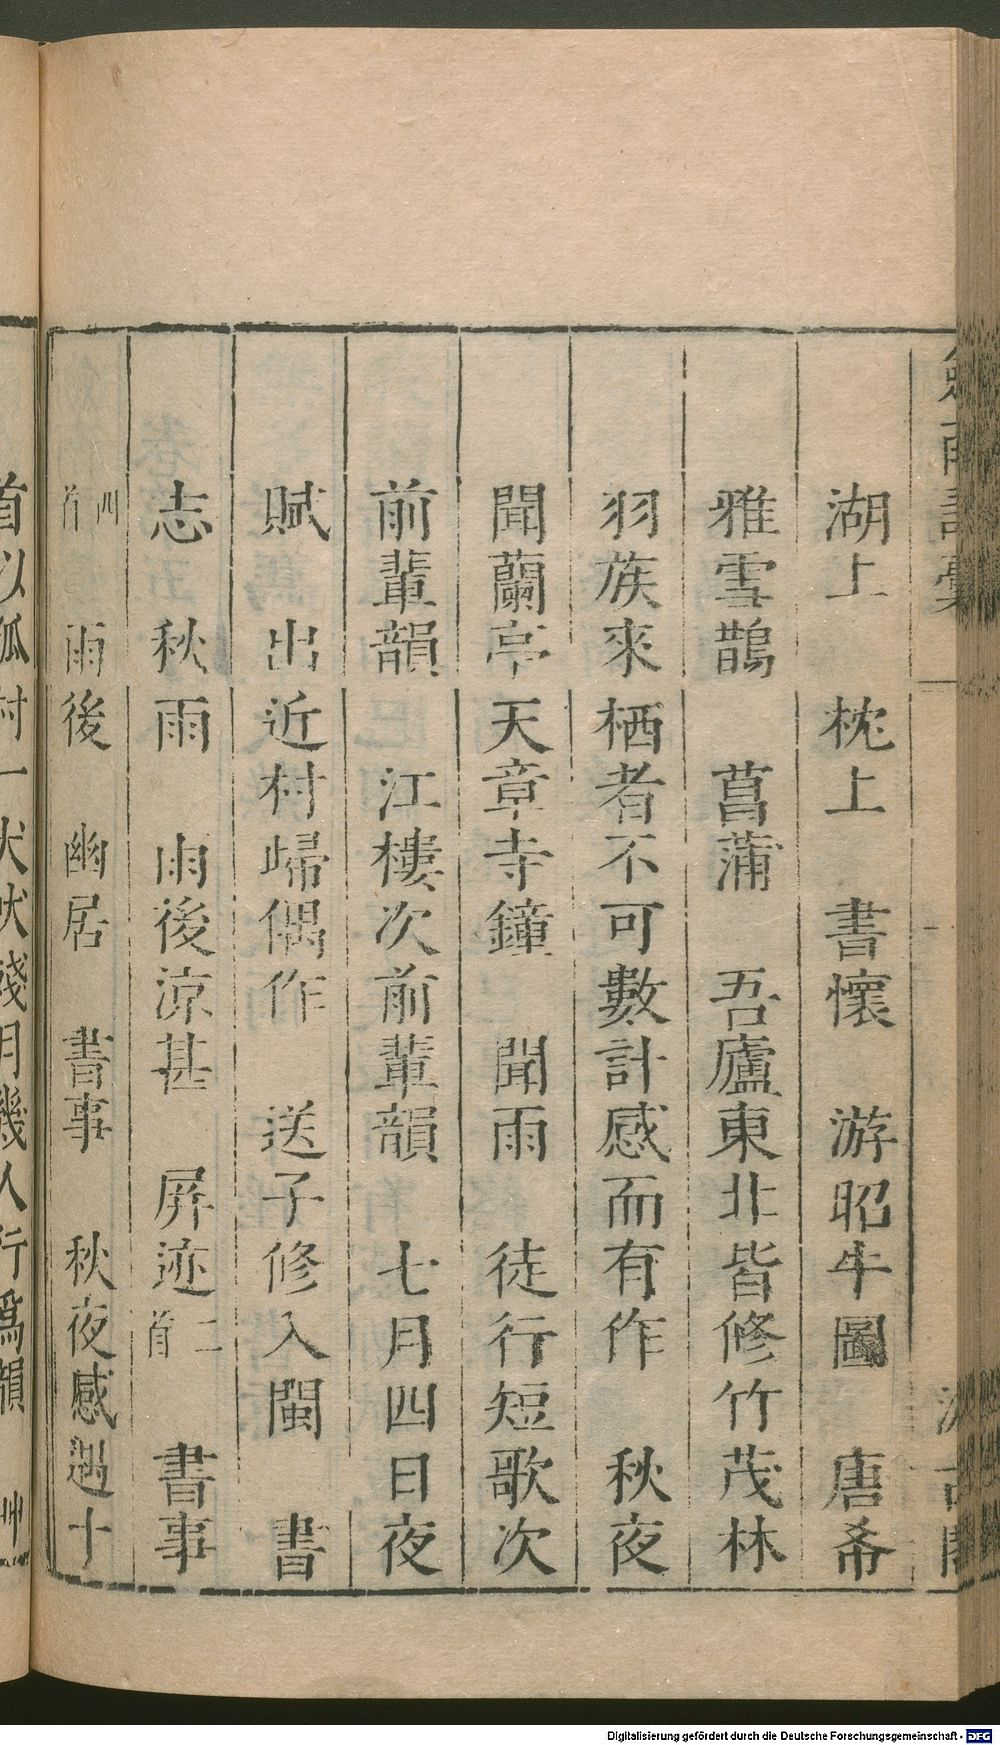 劍南詩稾 汲古閣
湖上 枕上 書懷 游昭牛圖 唐希
雅雪鵲 菖蒲 吾廬東北皆修竹茂林
羽族來栖者不可數計感而有作 秋夜
聞蘭亭天章寺鐘 聞雨 徒行短歌次
前輩韻 江樓次前輩韻 七月四日夜
賦 出近村歸偶作 送子修入閩 書
志 秋雨 雨後涼甚 屏迹二首 書事
四首 雨後 幽居 書事 秋夜感遇十
首以孤村一犬吠殘月幾人行爲韻 艸
Digitalisierung gefördert durch die Deutsche Forschungsgemeinschaft - DFG